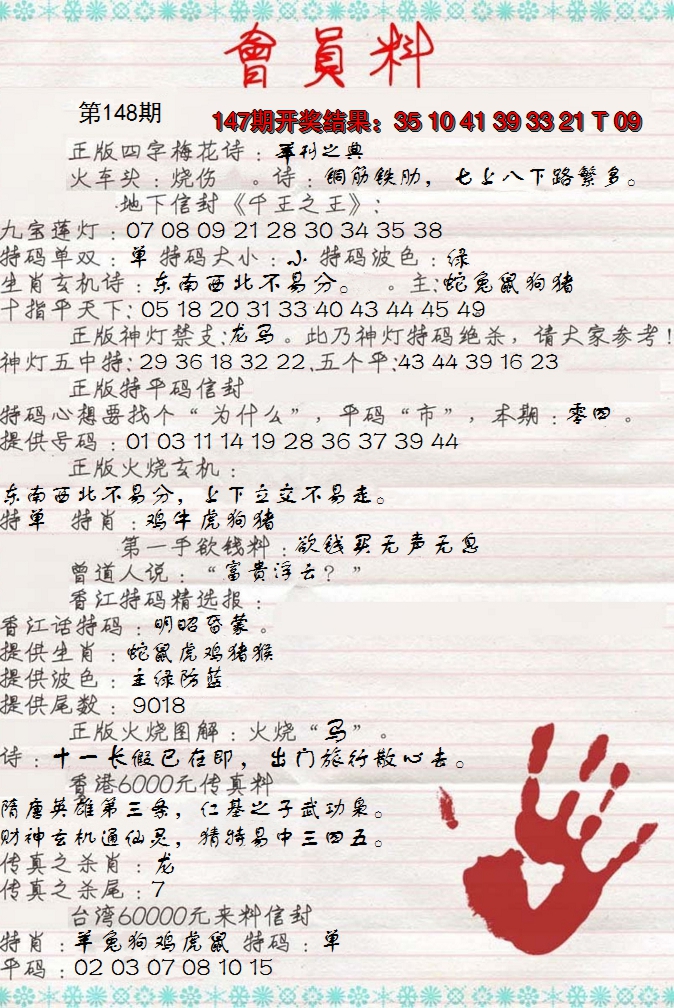 會員料
第148期
147期开奖结果：35 10 41 39 33 21 T 09
正版四字梅花诗：羊刊之典
火车头：烧伤 。诗：铜筋铁肋，七上八下路繁多。
地下信封《千王之王》：
九宝莲灯：07 08 09 21 28 30 34 35 38
特码单双：单 特码大小：小 特码波色：绿
生肖玄机诗：东南西北不易分。 。主：蛇兔鼠狗猪
十指平天下：05 18 20 31 33 40 43 44 45 49
正版神灯禁支：龙马。此乃神灯特码绝杀，请大家参考！
神灯五中特：29 36 18 32 22.五个平：43 44 39 16 23
正版特平码信封
特码心想要找个“为什么”，平码“市”，本期：零四。
提供号码：01 03 11 14 19 28 36 37 39 44
正版火烧玄机：
东南西北不易分，上下立交不易走。
特单 特肖：鸡牛虎狗猪
第一手欲钱料：欲钱买无声无息
曾道人说：“富贵浮云？”
香江特码精选报：
香江话特码：明昭昏蒙。
提供生肖：蛇鼠虎鸡猪猴
提供波色：主绿防蓝
提供尾数：9018
正版火烧图解：火烧“马”。
诗：十一长假已在即，出门旅行散心去。
香港6000元传真料
隋唐英雄第三条，仁基之子武功枭。
财神玄机通仙灵，猜特易中三四五。
传真之杀肖：龙
传真之杀尾：7
台湾60000元来料信封
特肖：羊兔狗鸡虎鼠 特码：单
平码：02 03 07 08 10 15